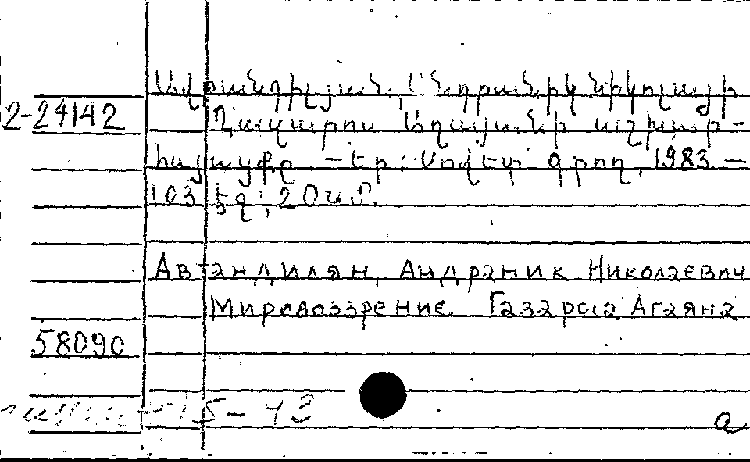 Ավտանդիլյան, Անդրանիկ Նիկոլայի
2-24142 Ղազարոս Աղայանի աշխար-
հայացքը. – Եր.: Սովետ. գրող, 1983. –
103 էջ; 20 սմ.
Автандилян, Андраник Николаевич
Мировоззрение Газароса Агаяна
58090
15-43
а